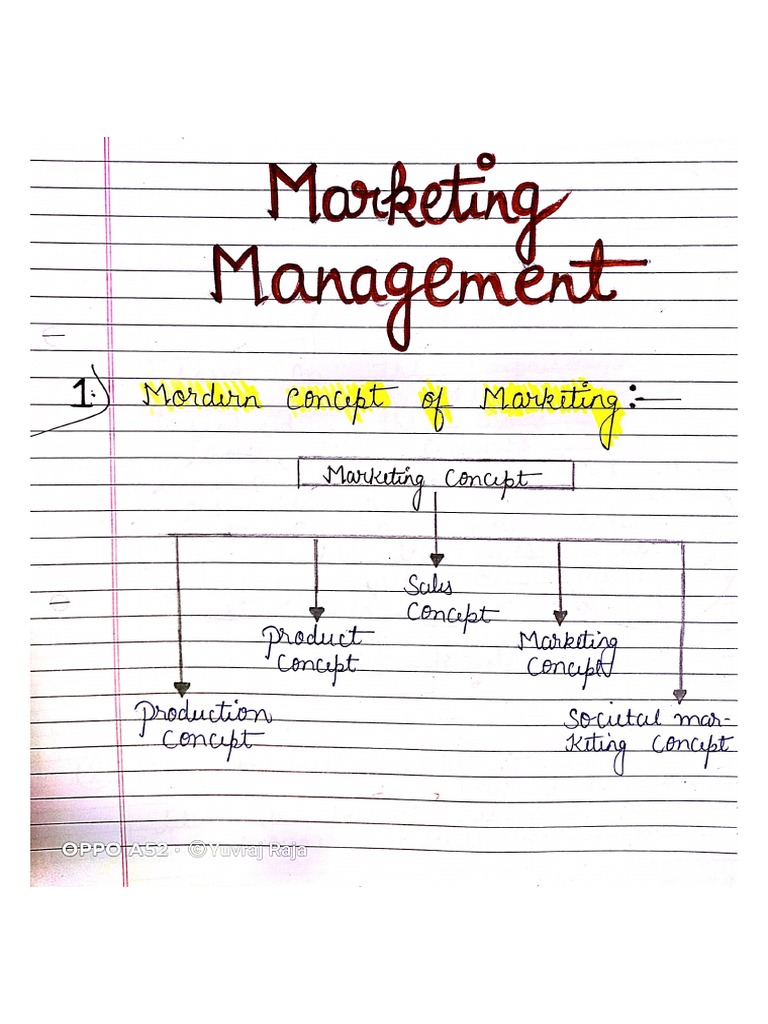 Marketing
Management
1.) Mordern Concept of Marketing :-
Marketing Concept
Sales
Concept
Product
Concept
Marketing
Concept
Production
Concept
Societal mar-
keting concept
OPPO A52 · ©Yuvraj Raja